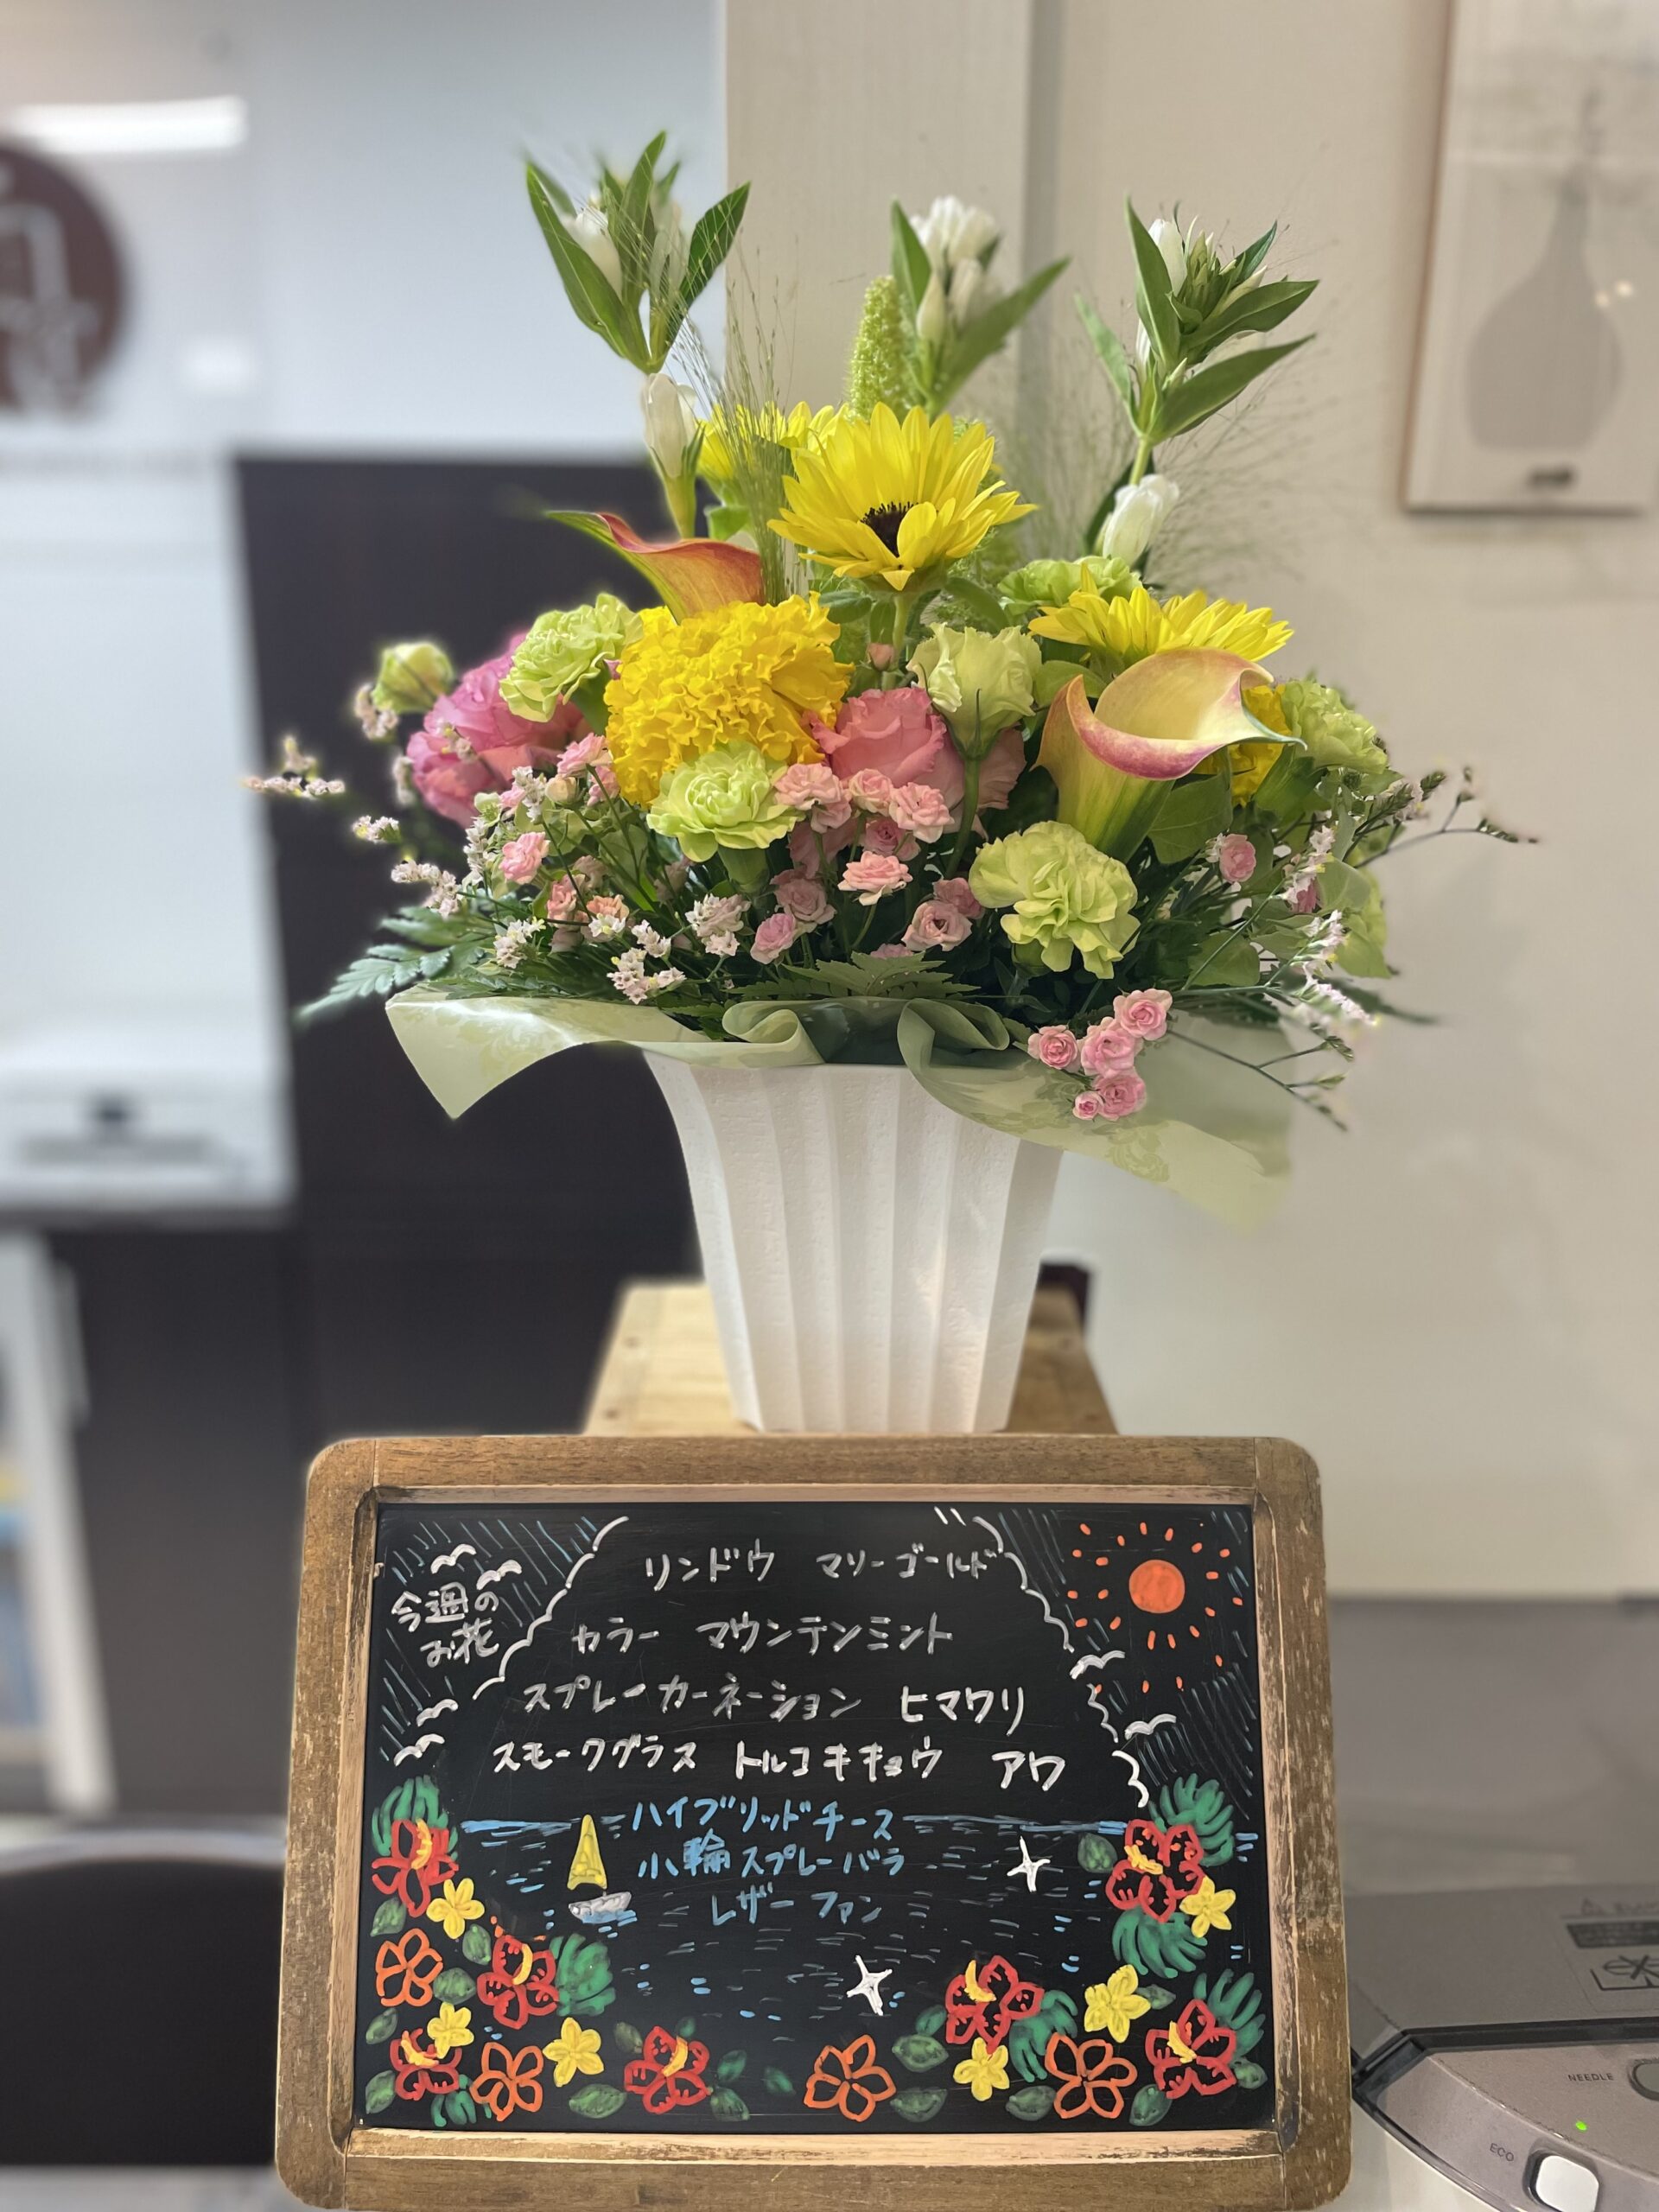 今週の
お花
リンドウ マリーゴールド
カラー マウンテンミント
スプレーカーネーション ヒマワリ
スモークグラス トルコキキョウ アワ
ハイブリッドチース
小輪スプレーバラ
レザーファン
NEEDLE
ECO